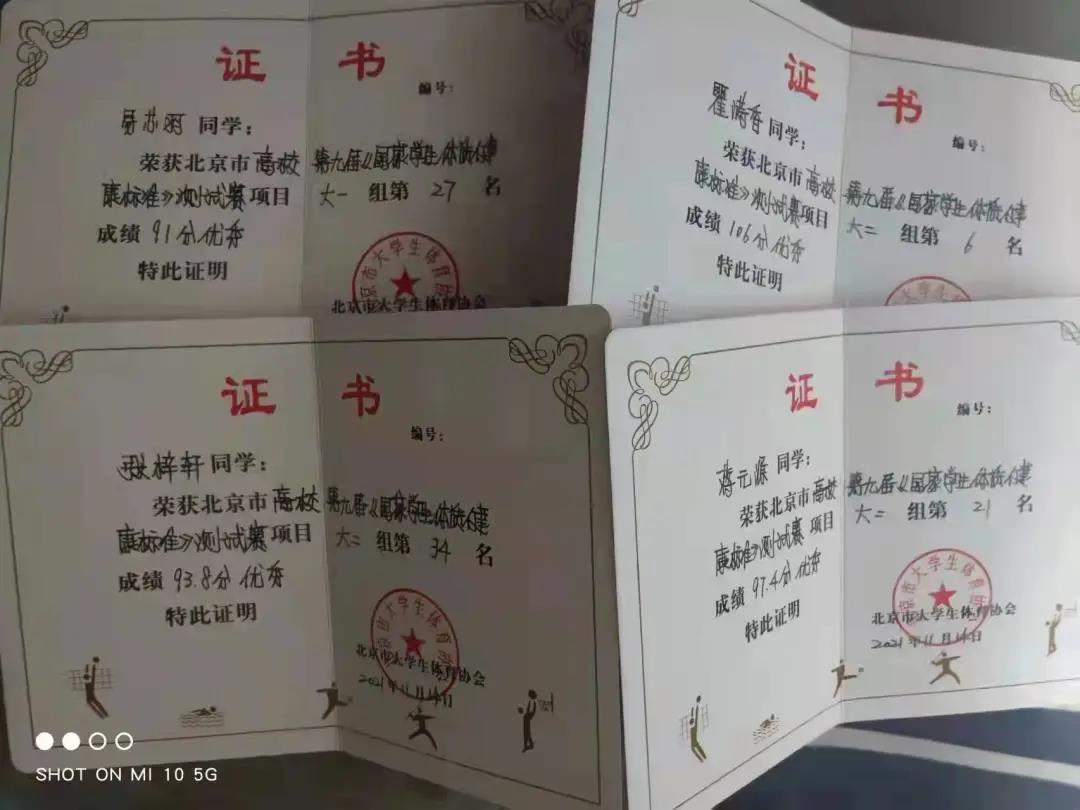 证 书
编号：
同学：
荣获北京市高校 第九届《国家学生体质健
康标准》测试赛项目 大一 组第 27 名
成绩 91分优秀
特此证明
北京市大学生体育协会
证 书
编号：
瞿满香同学：
荣获北京市高校 第九届《国家学生体质健
康标准》测试赛项目 大二 组第 6 名
成绩 106分优秀
特此证明
证 书
编号：
梓轩同学：
荣获北京市高校 第九届《国家学生体质健
康标准》测试赛项目 大二 组第 34 名
成绩 93.8分优秀
特此证明
北京市大学生体育协会
2021年11月14日
证 书
编号：
蒋元涤同学：
荣获北京市高校 第九届《国家学生体质健
康标准》测试赛项目 大二 组第 21 名
成绩 97.4分优秀
特此证明
北京市大学生体育协会
2021年11月14日
SHOT ON MI 10 5G